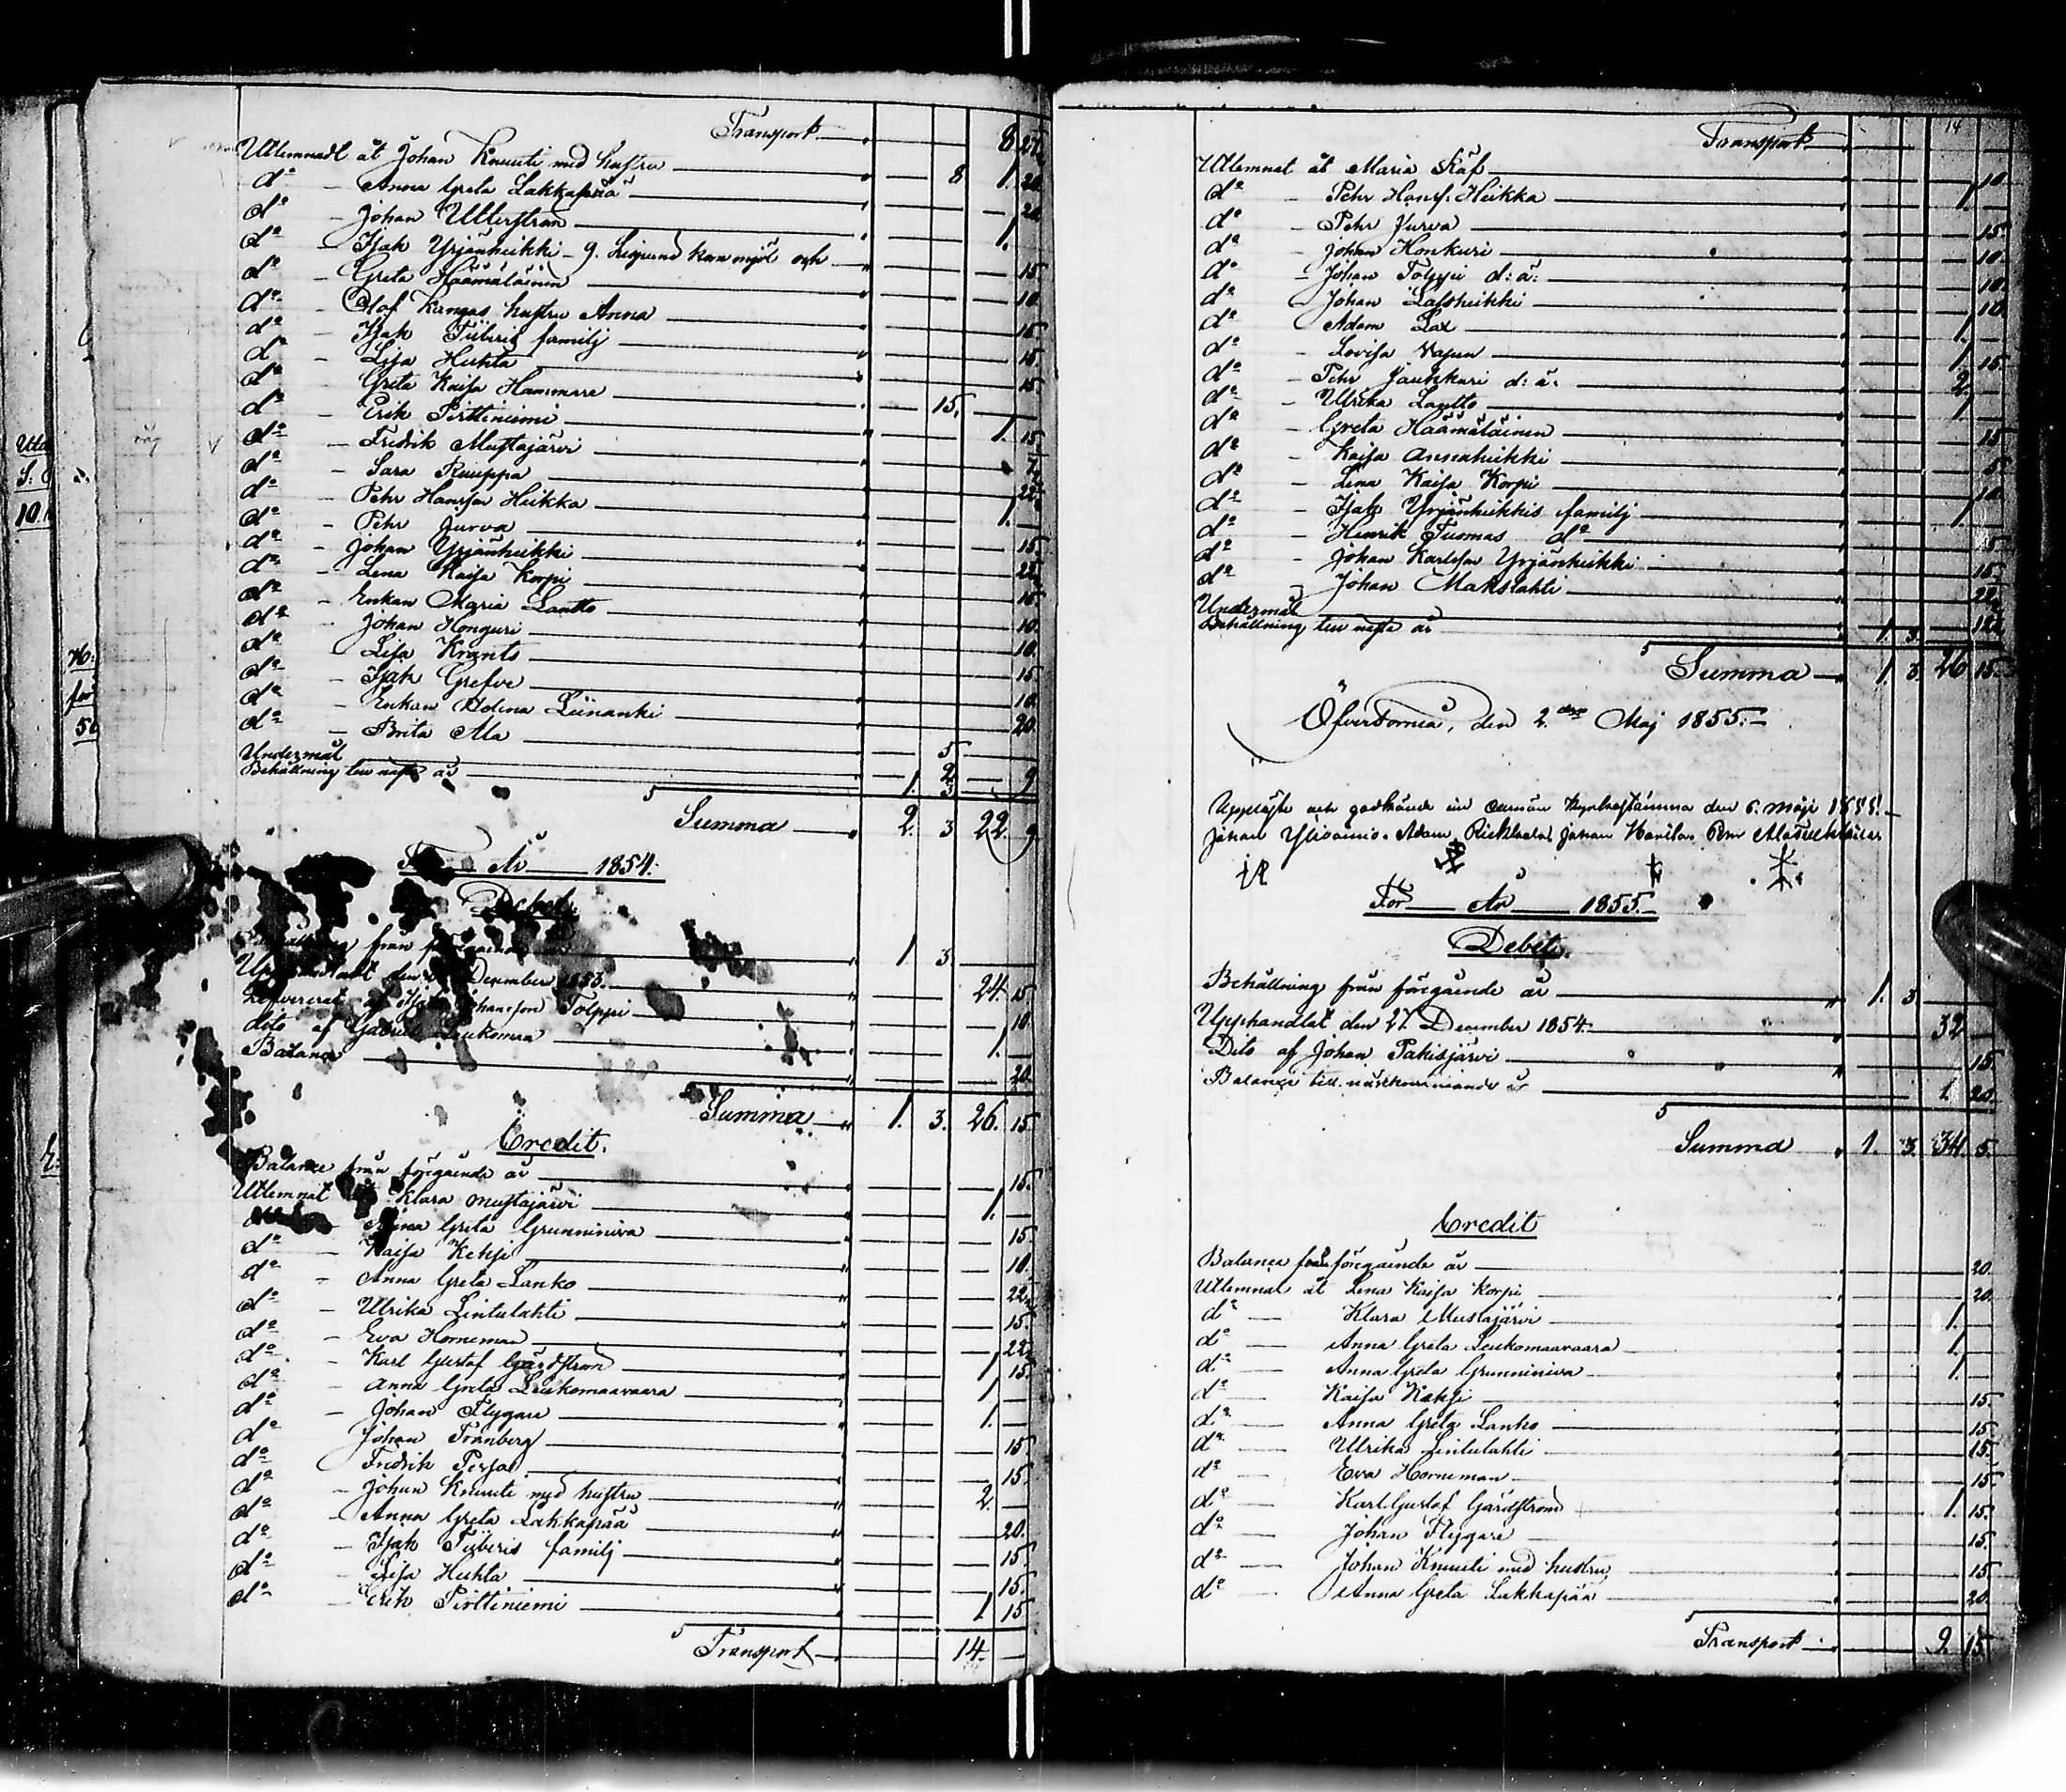 Transport 8 27
Utlemnadt åt Johan Knuuti med hustru 8 1. 20
do Anna Greta Lakkapää 20
do Johan Utterström 1.
do Isak Yrjänheikki g. Lispund kornmjöl och 15
do Greta Häämäläinen 10.
do Olof Kangas hustru Anna 15.
do Isak Tiiberis familj 15
do Lisa Huhta 15.
do Greta Kaisa Hammare 15.
do Erik Pirttiniemi 1. 15
do Fredrik Mustajärvi
do Sara Ruuppa 22
do Pehr Hansson Heikka 1.
do Pehr Jurva 15
do Johan Yrjänheikki 22
do Lena Kaisa Korpi 15
do Enkan Maria Lantto 10.
do Johan Honguri 10.
do Lisa Krants 15
do Isak Grefve 10.
do Enkan Adina Liinanki 20.
do Brita Ala
Undermål 5
Behållning till nästa år 1. 2 3 9
Summa 2. 3 22. 9
För År 1854.
Debet.
från 1 3
den December 1853. 24. 15
Levererat af Johansson Tolppi 10.
dito af Gabriel Leukomaa 1.
Balance 20.
Summa 1. 3. 26. 15
Credit.
Balance från föregående år 15.
Utlemnat Klara Mustajärvi 1.
Anna Greta Grunniniva 15
do Kaisa Kehji 10.
do Anna Greta Lanko 22
do Ulrika Lintulahti 15.
do Eva Horneman 22
do Karl Gustaf Gärdström 1 15
do Anna Greta Leukomaavaara 1
do Johan Flygare 1.
do Johan Tranberg 15
do Fredrik Persa 15.
do Johan Knuuti med hustru 2.
do Anna Greta Lakkapää 20.
do Isak Tiiberis familj 15
do Lisa Huhta 15.
do Erik Pirttiniemi 1 15
Transport 14.
14
Transport
Utlemnat åt Maria Käf 10
do Pehr Hans. Heikka 1.
do Pehr Jurva 15.
do Johan Honkuri 10.
do Johan Tolppi d: ä: 10.
do Johan Lassheikki 10
do Adam Lax 1.
do Lovisa Vapen 1. 15
do Pehr Jauhkuri d: ä: 2.
do Ulrika Lantto 1.
do Greta Häämäläinen 15
do Kaisa Annaheikki 5.
do Lena Kaisa Korpi 10
do Isak Yrjänheikkis familj 1.
do Henrik Tuomas do 5
do Johan Karlsson Yrjänheikki 15
do Johan Makslahti 22
Undermål 12
Behållning till nästa år 1. 3.
Summa 1. 3. 26 15.
Öfvertorneå, den 2. dra Maj 1855.
Uppläste och godkände vid allmän Kyrkostämma den 6. Maji 1855.
Johan Ylivainio. Adam Johan
För År 1855.
Debet.
Behållning från föregående år 1. 3
Upphandlat den 27. December 1854. 32
Dito af Johan Pakisjärvi 15
Balance till nästkommande år 1. 20.
Summa 1. 3. 34. 5.
Credit
Balance från föregående år 20.
Utlemnat åt Lena Kaisa Korpi 20.
do Klara Mustajärvi 1.
do Anna Greta Leukomaavaara 1.
do Anna Greta Grunniniva 1.
do Kaisa Kehji 15.
do Anna Greta Lanko 15
do Ulrika Lintulahti 15.
do Eva Horneman 15
do Karl Gustaf Gärdström 1. 15.
do Johan Flygare 15.
do Johan Knuuti med hustru 15
do Anna Greta Lakkapää 20.
Transport 9. 15.